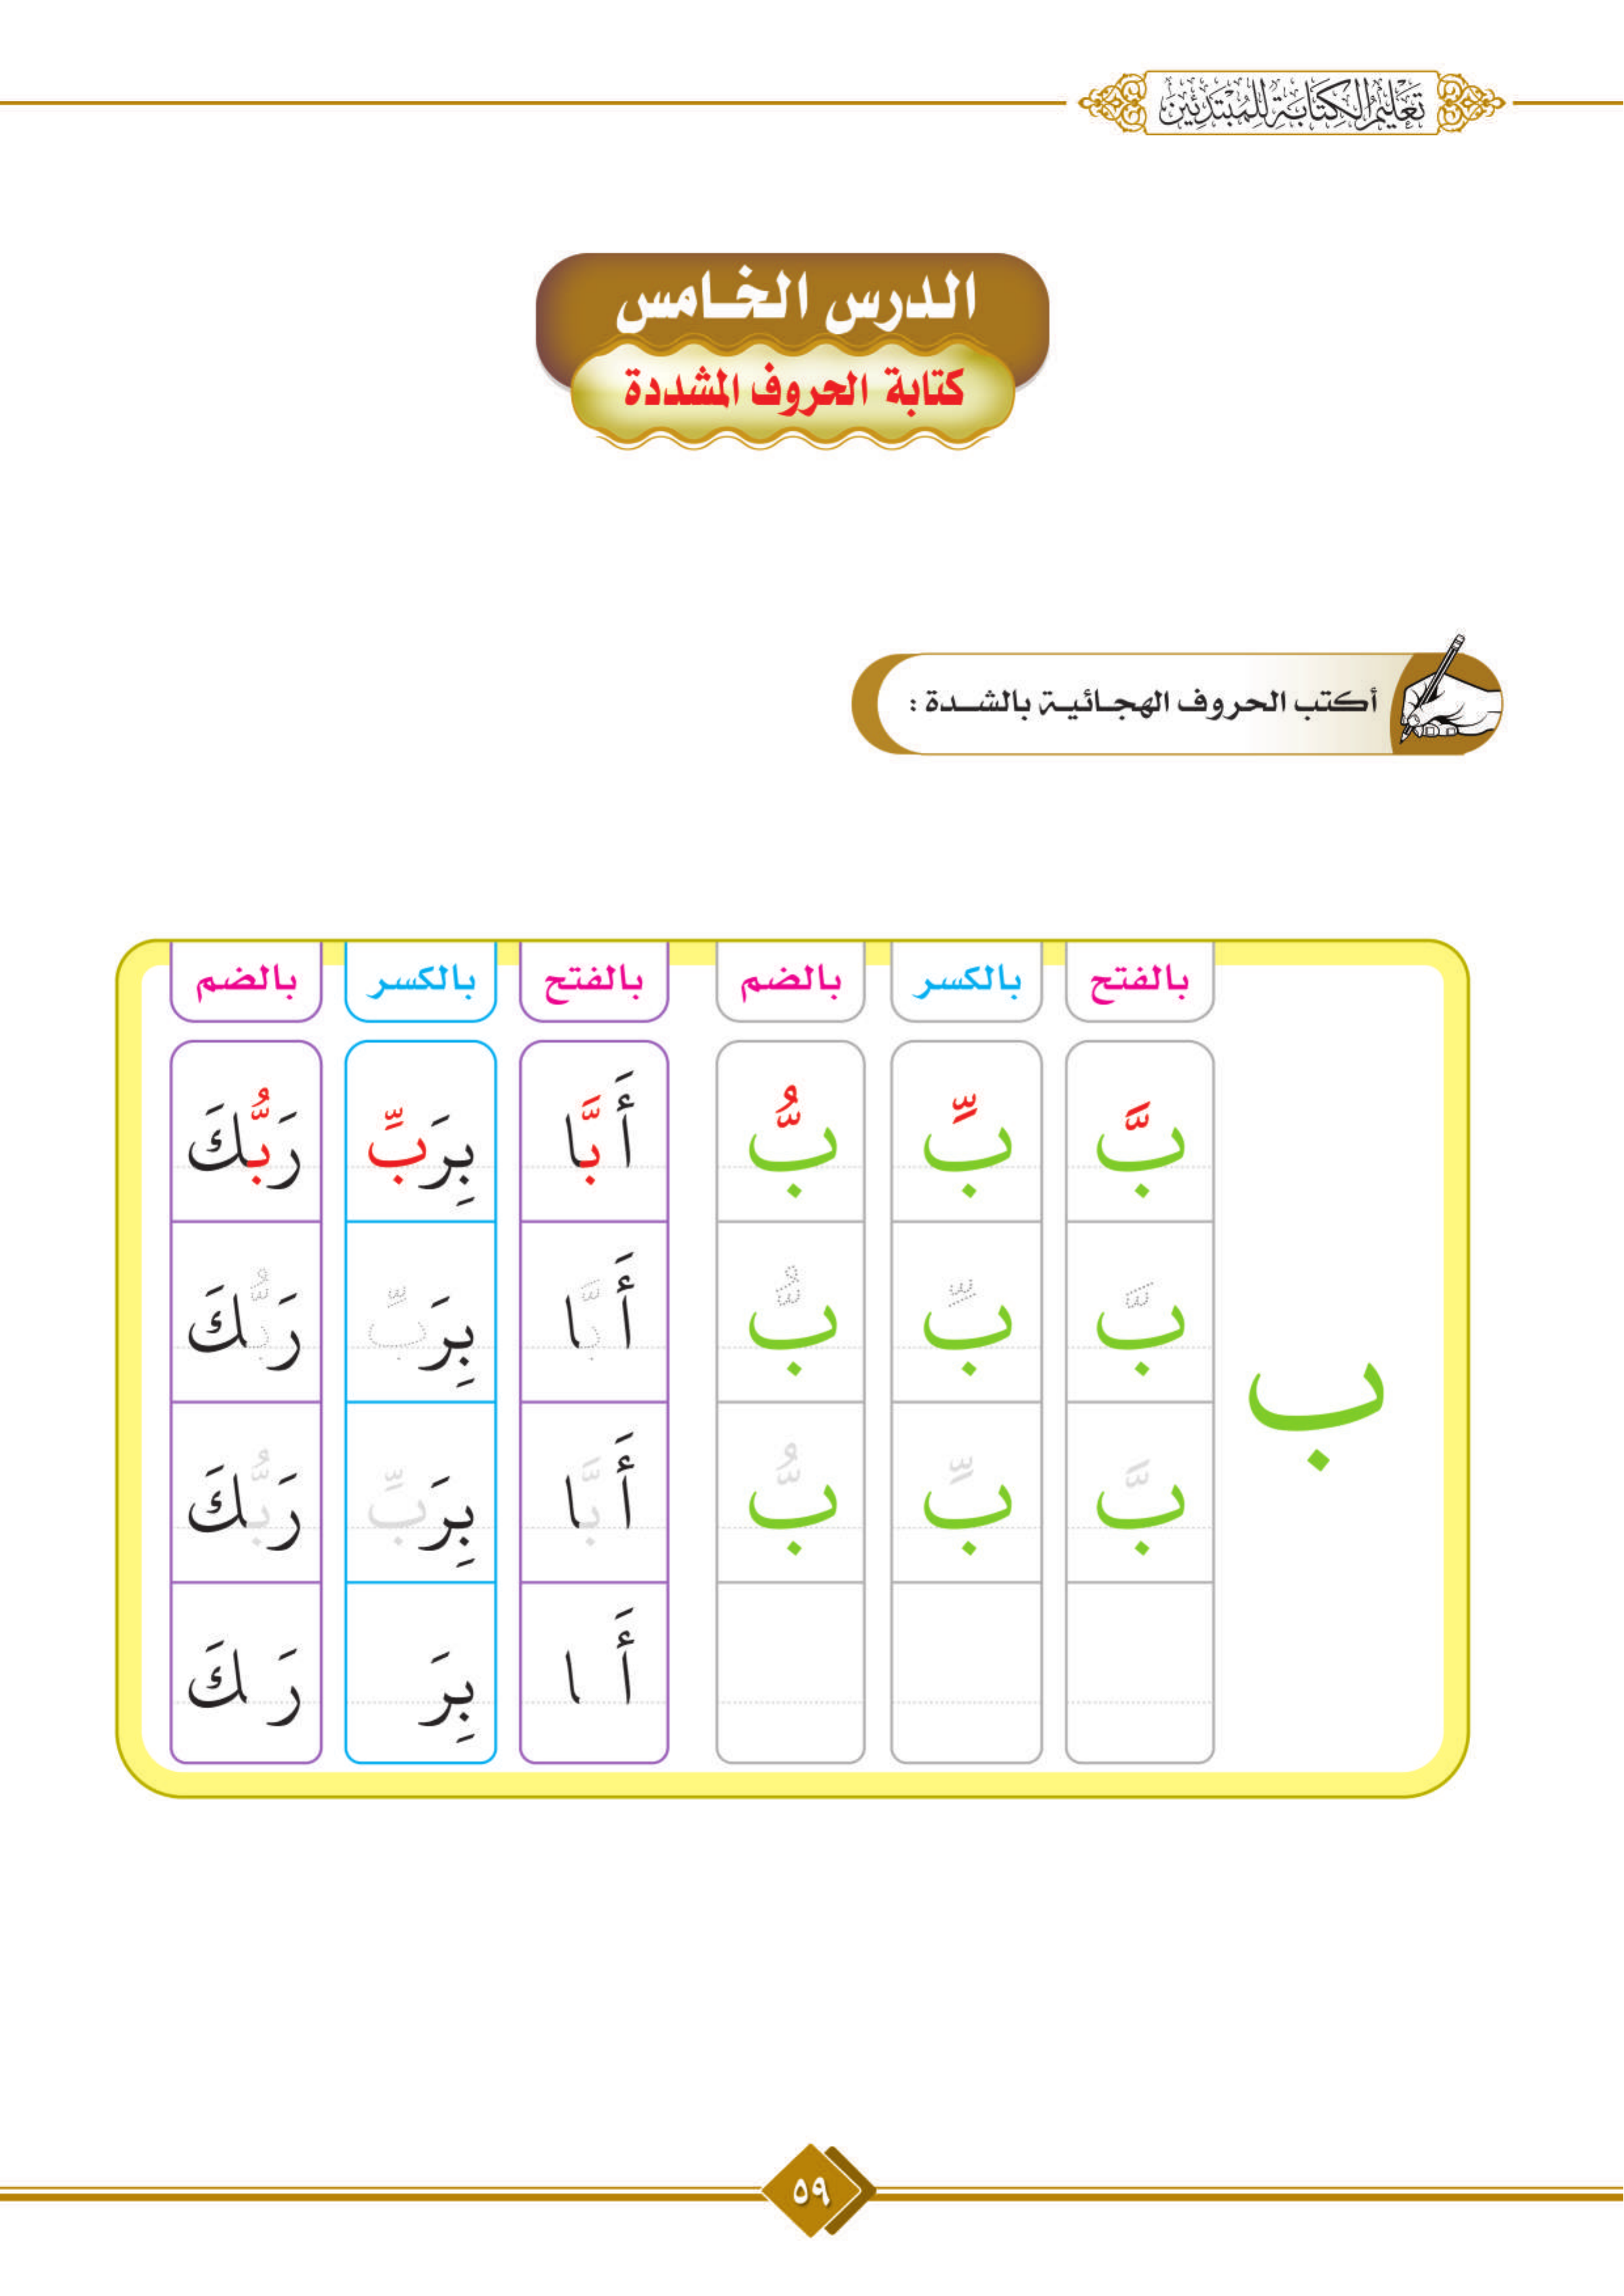 تَعْلِيمُ الكِتَابَةِ لِلْمُبْتَدِئِينَ
الدرس الخامس
كتابة الحروف المشددة
أكتب الحروف الهجائية بالشدة :
بالفتح بالكسر بالضم بالفتح بالكسر بالضم
بَّ بِّ بُّ أَبَّا بِرَبِّ رَبُّكَ
بَّ بِّ بُّ أَبَّا بِرَبِّ رَبُّكَ
ب
بَّ بِّ بُّ أَبَّا بِرَبِّ رَبُّكَ
أَ ا بِرَ رَ كَ
٥٩